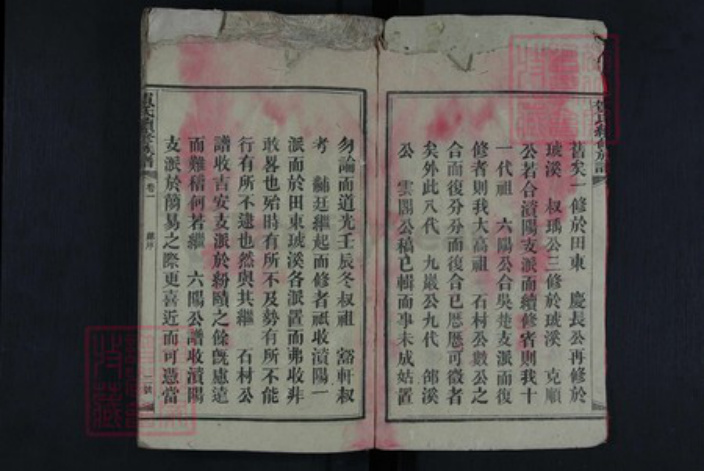 舊矣一修於田東　慶長公再修於
琥溪　叔瑀公三修於琥溪　克順
公若合瀆陽支派而續修者則我十
一代祖　六陽公合吳楚支派而復
修者則我大高祖　石村公數公之
合而復分分而復合已歷歷可徵者
矣外此八代　九巖公九代　郃溪
公　雲閣公稿已輯而事未成姑置
勿論而道光壬辰冬叔祖　谿軒叔
考　黼廷繼起而修者祗收瀆陽一
派而於田東琥溪各派置而弗收非
敢畧也殆時有所不及勢有所不能
行有所不逮也然與其繼　石村公
譜收吉安支派於紛賾之餘旣慮遠
而難稽何若繼　六陽公譜收瀆陽
支派於簡易之際更喜近而可憑當
卷一
二號